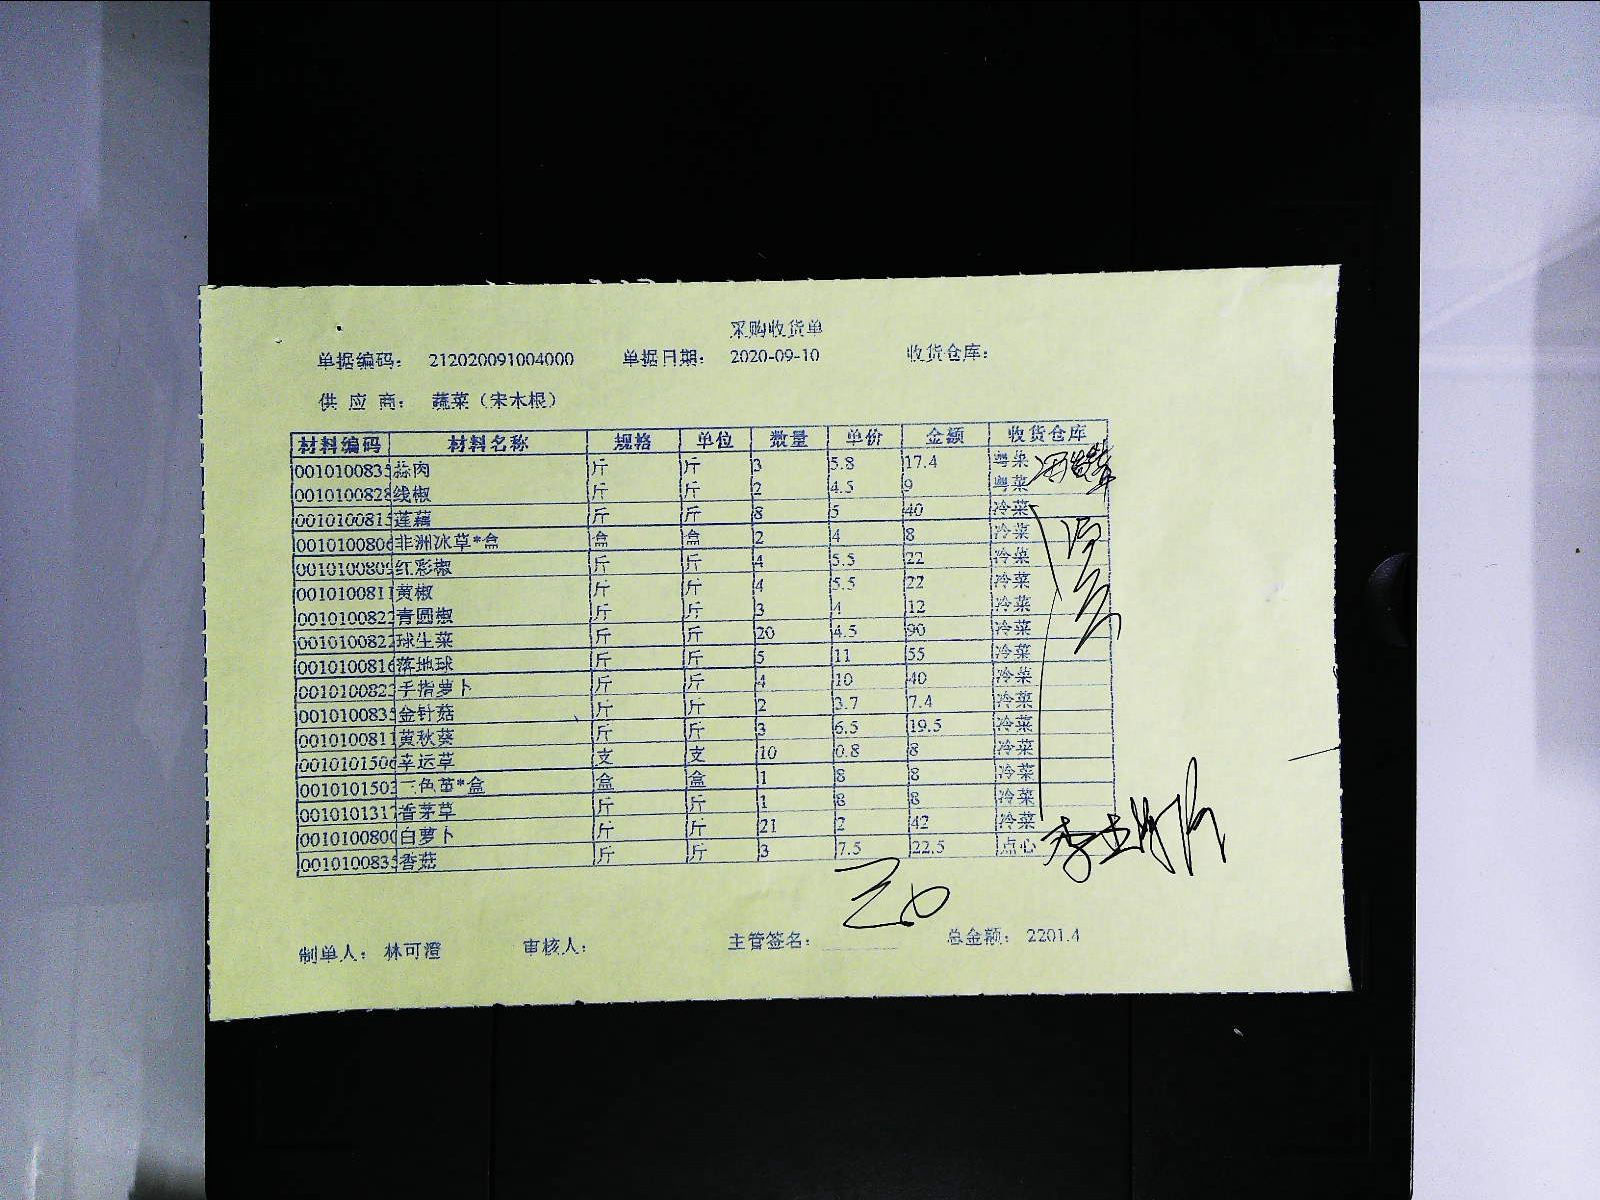 采购收货单
单据编码： 212020091004000 单据日期： 2020-09-10 收货仓库：
供 应 商： 蔬菜（宋木根）
材料编码 材料名称 规格 单位 数量 单价 金额 收货仓库
0010100835 蒜肉 斤 斤 3 5.8 17.4 粤菜
0010100828 线椒 斤 斤 2 4.5 9 粤菜
0010100815 莲藕 斤 斤 8 5 40 冷菜
0010100806 非洲冰草*盒 盒 盒 2 4 8 冷菜
0010100809 红彩椒 斤 斤 4 5.5 22 冷菜
0010100811 黄椒 斤 斤 4 5.5 22 冷菜
0010100822 青圆椒 斤 斤 3 4 12 冷菜
0010100822 球生菜 斤 斤 20 4.5 90 冷菜
0010100816 落地球 斤 斤 5 11 55 冷菜
0010100823 手指萝卜 斤 斤 4 10 40 冷菜
0010100835 金针菇 斤 斤 2 3.7 7.4 冷菜
0010100811 黄秋葵 斤 斤 3 6.5 19.5 冷菜
0010101506 幸运草 支 支 10 0.8 8 冷菜
0010101503 三色堇*盒 盒 盒 1 8 8 冷菜
0010101317 香茅草 斤 斤 1 8 8 冷菜
0010100800 白萝卜 斤 斤 21 2 42 冷菜
0010100835 香菇 斤 斤 3 7.5 22.5 点心
制单人： 林可澄 审核人： 主管签名： 总金额： 2201.4